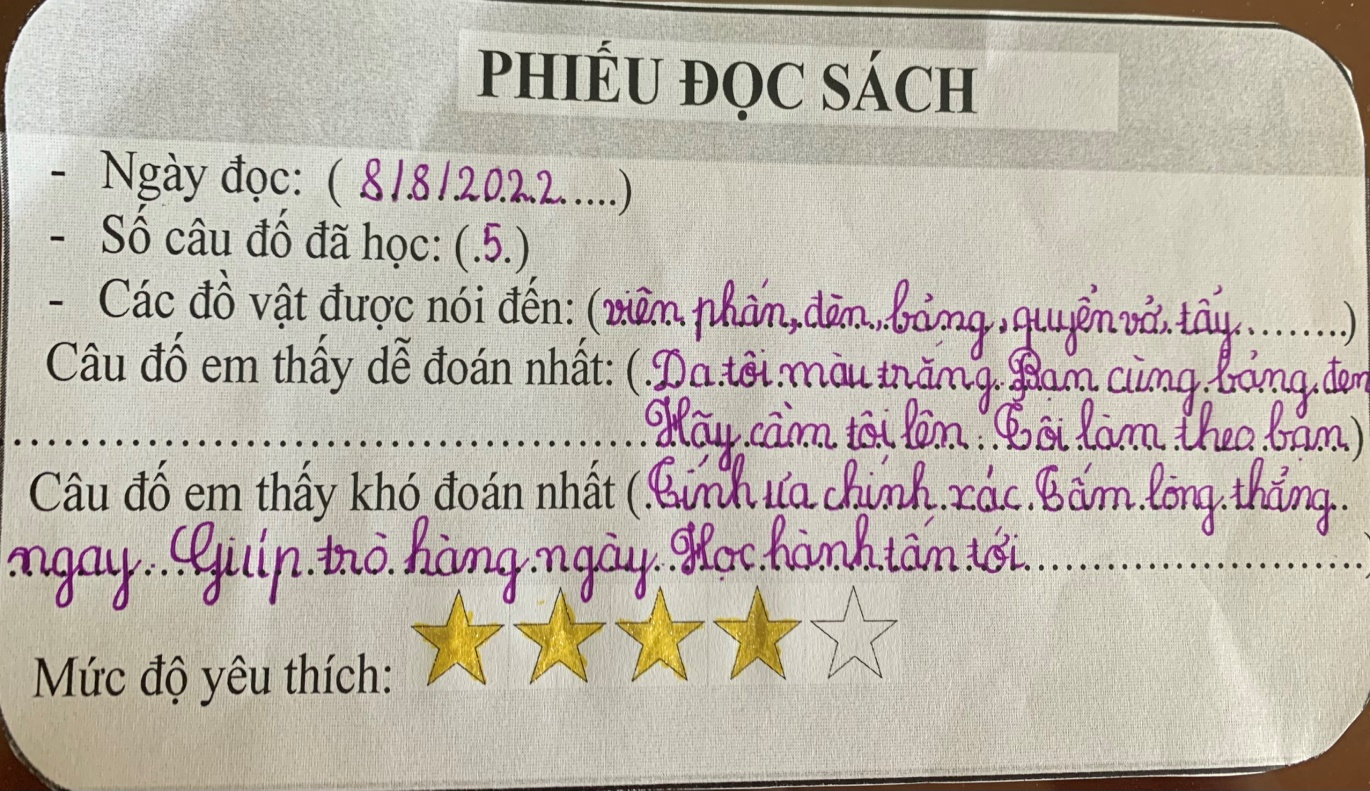 PHIẾU ĐỌC SÁCH
- Ngày đọc: ( 8/8/2022.....)
- Số câu đố đã học: (.5.)
- Các đồ vật được nói đến: (viên phấn, đèn, bảng, quyển vở, tẩy.........)
Câu đố em thấy dễ đoán nhất: (.Da tôi màu trắng. Bạn cùng bảng đen
......................................Hãy cầm tôi lên. Tôi làm theo bạn)
Câu đố em thấy khó đoán nhất (.Tính ưa chính xác. Tấm lòng thẳng
ngay...Giúp trò hàng ngày. Học hành tấn tới.........................)
Mức độ yêu thích: